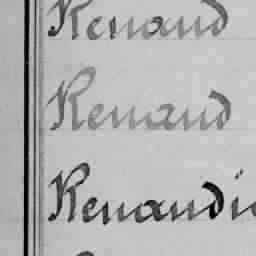 Renaud
Renaud
Renaudi